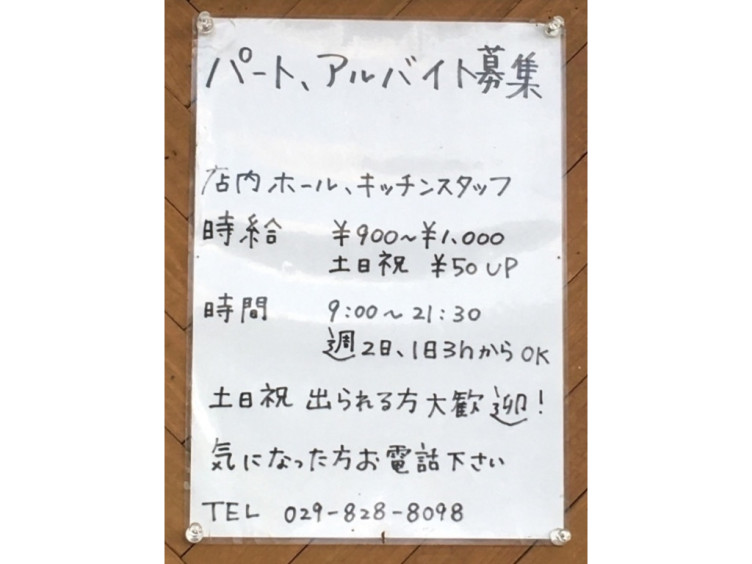 パート、アルバイト募集
店内ホール、キッチンスタッフ
時給 ¥900〜¥1,000
土日祝 ¥50 UP
時間 9:00〜21:30
週2日、1日3hからOK
土日祝 出られる方大歓迎!
気になった方お電話下さい
TEL 029-828-8098